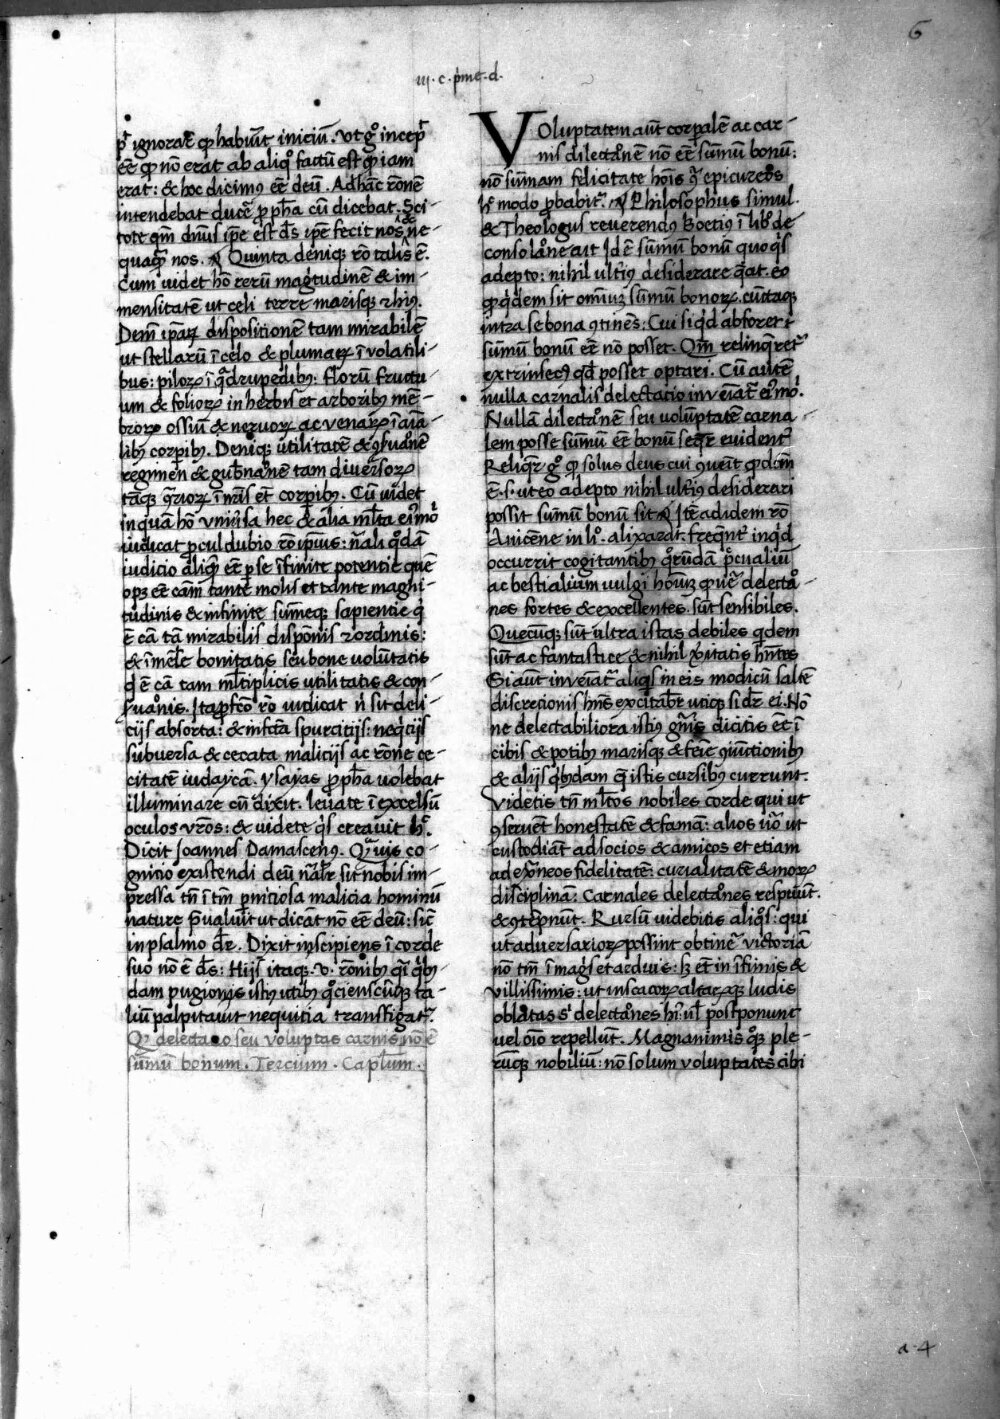 6
iij. c. pme. d.
p̄ ignorar̄ qꝫ habūit iniciū. Vt gͦ incep̄
ēē qꝫ nō erat ab aliqͦ factū est qꝫ iam
erat: & hoc dicimꝰ ēē deū. Ad hāc rōnē
intendebat ducē ꝓpħa cū dicebat. Sci-
tote qm̄ dn̄us ip̄e est d̄s ip̄e fecit nos & ne-
quaqꝫ nos. Quinta deniqꝫ rō talis ē.
Cum videt hō rerū magͥtudinē & im-
mensitatē ut celi terre marisqꝫ & hiꝰ.
Dem̄ ip̄aꝝ dispositionē tam mirabilē
ut stellarū ī celo & plumaꝝ ī volatili-
bus: piloꝝ ī qͣdrupedibꝰ: florū fructu-
um & folioꝝ in herbis et arboribus mē-
broꝝ ossiū & nervoꝝ ac venaꝝ ī aīa-
libꝰ corꝑibꝰ. Deniqꝫ utilitatē & ꝯservaͦnē
regimen & gubnaͦnē tam diversoꝝ
tāqꝫ ꝯͣrioꝝ ī nr̄is et̄ corꝑibꝰ. Cū videt
inquā hō vniṽsa hec & alia ml̄ta eiꝰmoͥ
iudicat ꝓcul dubio rō ipsiꝰ: nāli qͦdā
iudicio aliqͥd ēē ꝑ se īfinite potentie quē
opꝫ ēē cām tante molis et tante magni-
tudinis & infinite sūmeqꝫ sapientie qͥ
ē cā tā mirabilis dispōnis & ordinis:
& īmēse bonitatis seu bone volūtatis
qͥ ē cā tam ml̄tiplicis utilitatis & con-
ẜvaͦnis. Ita ꝓfcō rō iudicat n̄ sit deli-
cijs absorta: & infc̄ta spurcitijs: neqͥcijs
subversa & cecata malicijs ac rōne ce-
citatē iudaycā. Ysayas ꝓpħa volebat
illuminare cū dixit. levate ī excelsū
oculos vr̄os: & videte qͥs creavit hͦ.
Dicit Joannes Damascenꝰ. Qͣuis co-
gnitio existendi deū nālr̄ sit nobis im-
pressa tn̄ ī tm̄ ꝑniciosa malicia hominū
nature p̄valuit ut dicat nō ēē deū: sic̄
in psalmo dr̄. Dixit insipiens ī corde
suo nō ē d̄s: Hijs itaqꝫ .v. rōnibꝰ qͣi qͥbꝰ-
dam pugionis istiꝰ ictibꝰ qͦcienscūqꝫ ta-
liū palpitavit nequitia transfigatͬ.
Qꝫ delectaͦo seu voluptas carnis nō ē
sūmū bonum. Tercium. Capl̄um.
VOluptatem aūt corꝑalē ac car-
nis dilectaͦnē nō ēē sūmū bonū:
nō sūmam felicitatē hoīs qͣ epicureos
hͦ modo ꝓbabitͬ. Philosophus simul
& Theologus reverendꝰ Boetiꝰ ī libͦ de
consolaͦne ait Id ē sūmū bonū quo qͥs
adepto: nihil ultiꝰ desiderare qͣat. eo
qꝫ qͥdem sit omniū sūmū bonoꝝ. cūctaqꝫ
intra se bona ꝯtinēs: Cui si qͥd abforet
sūmū bonū ēē nō posset. Qm̄ relinqͥretͬ
extrinsecꝰ qd̄ posset optari. Cū autē
nulla carnalis delectacio inveīatͬ eiꝰmoͥ.
Nullā dilectaͦnē seu volūptatē carna-
lem posse sūmū ēē bonū seqͥtͬ evidentͬ
Reliqͥtͬ gͦ qꝫ solus deus cui ꝯvenit qꝫ dcm̄
ē. s. ut eo adepto nihil ultiꝰ desiderari
possit sumū bonū sit Itē ad idem rō
Avicēne in lͦ. alixarat. freqͣntͬ inqͥd
occurrit cogitantibꝰ qͦrūdā pͥcualiū
ac bestialium vulgi hoīum qꝫ quē delectaͦ-
nes fortes & excellentes sūt sensibiles.
Quecūqꝫ sūt ultra istas debiles qͥdem
sūt ac fantastice & nihil ṽitatis hn̄tes
Si aūt inveīatͬ aliqͥs in eis modicū saltē
discretionis hn̄s excitabr̄ uticqꝫ si dr̄ ei. Nō-
ne delectabiliora istiꝰ gn̄is dicitis ēē ī
cibis & potibꝰ marisqꝫ & feīe ꝯiūctionibꝰ
& alijs qͥbꝰdam qͥ istis cursibꝰ currunt.
Videtis tn̄ ml̄tos nobiles corde qui ut
ꝯservēt honestatē & famā: alios ṽo ut
custodiāt ad socios & amicos et etiam
ad exͣneos fidelitatē: curialitatē & moꝝ
disciplinā: Carnales delectaͦnes respuūt.
& ꝯtēpnūt. Rursū videbitis aliqͦs: qui
ut adversarioꝝ possint obtinē victoriā
nō tm̄ ī magͥs et arduis: sꝫ et̄ in īfimis &
villissimis: ut in scacoꝝ altaꝝqꝫ ludis
oblatas sͥ delectaͦnes hͥ: ul̄ postponunt
vel oīo repellūt. Magnanimis qͦqꝫ ple-
rūqꝫ nobiliū: nō solum voluptates cibi
a. 4